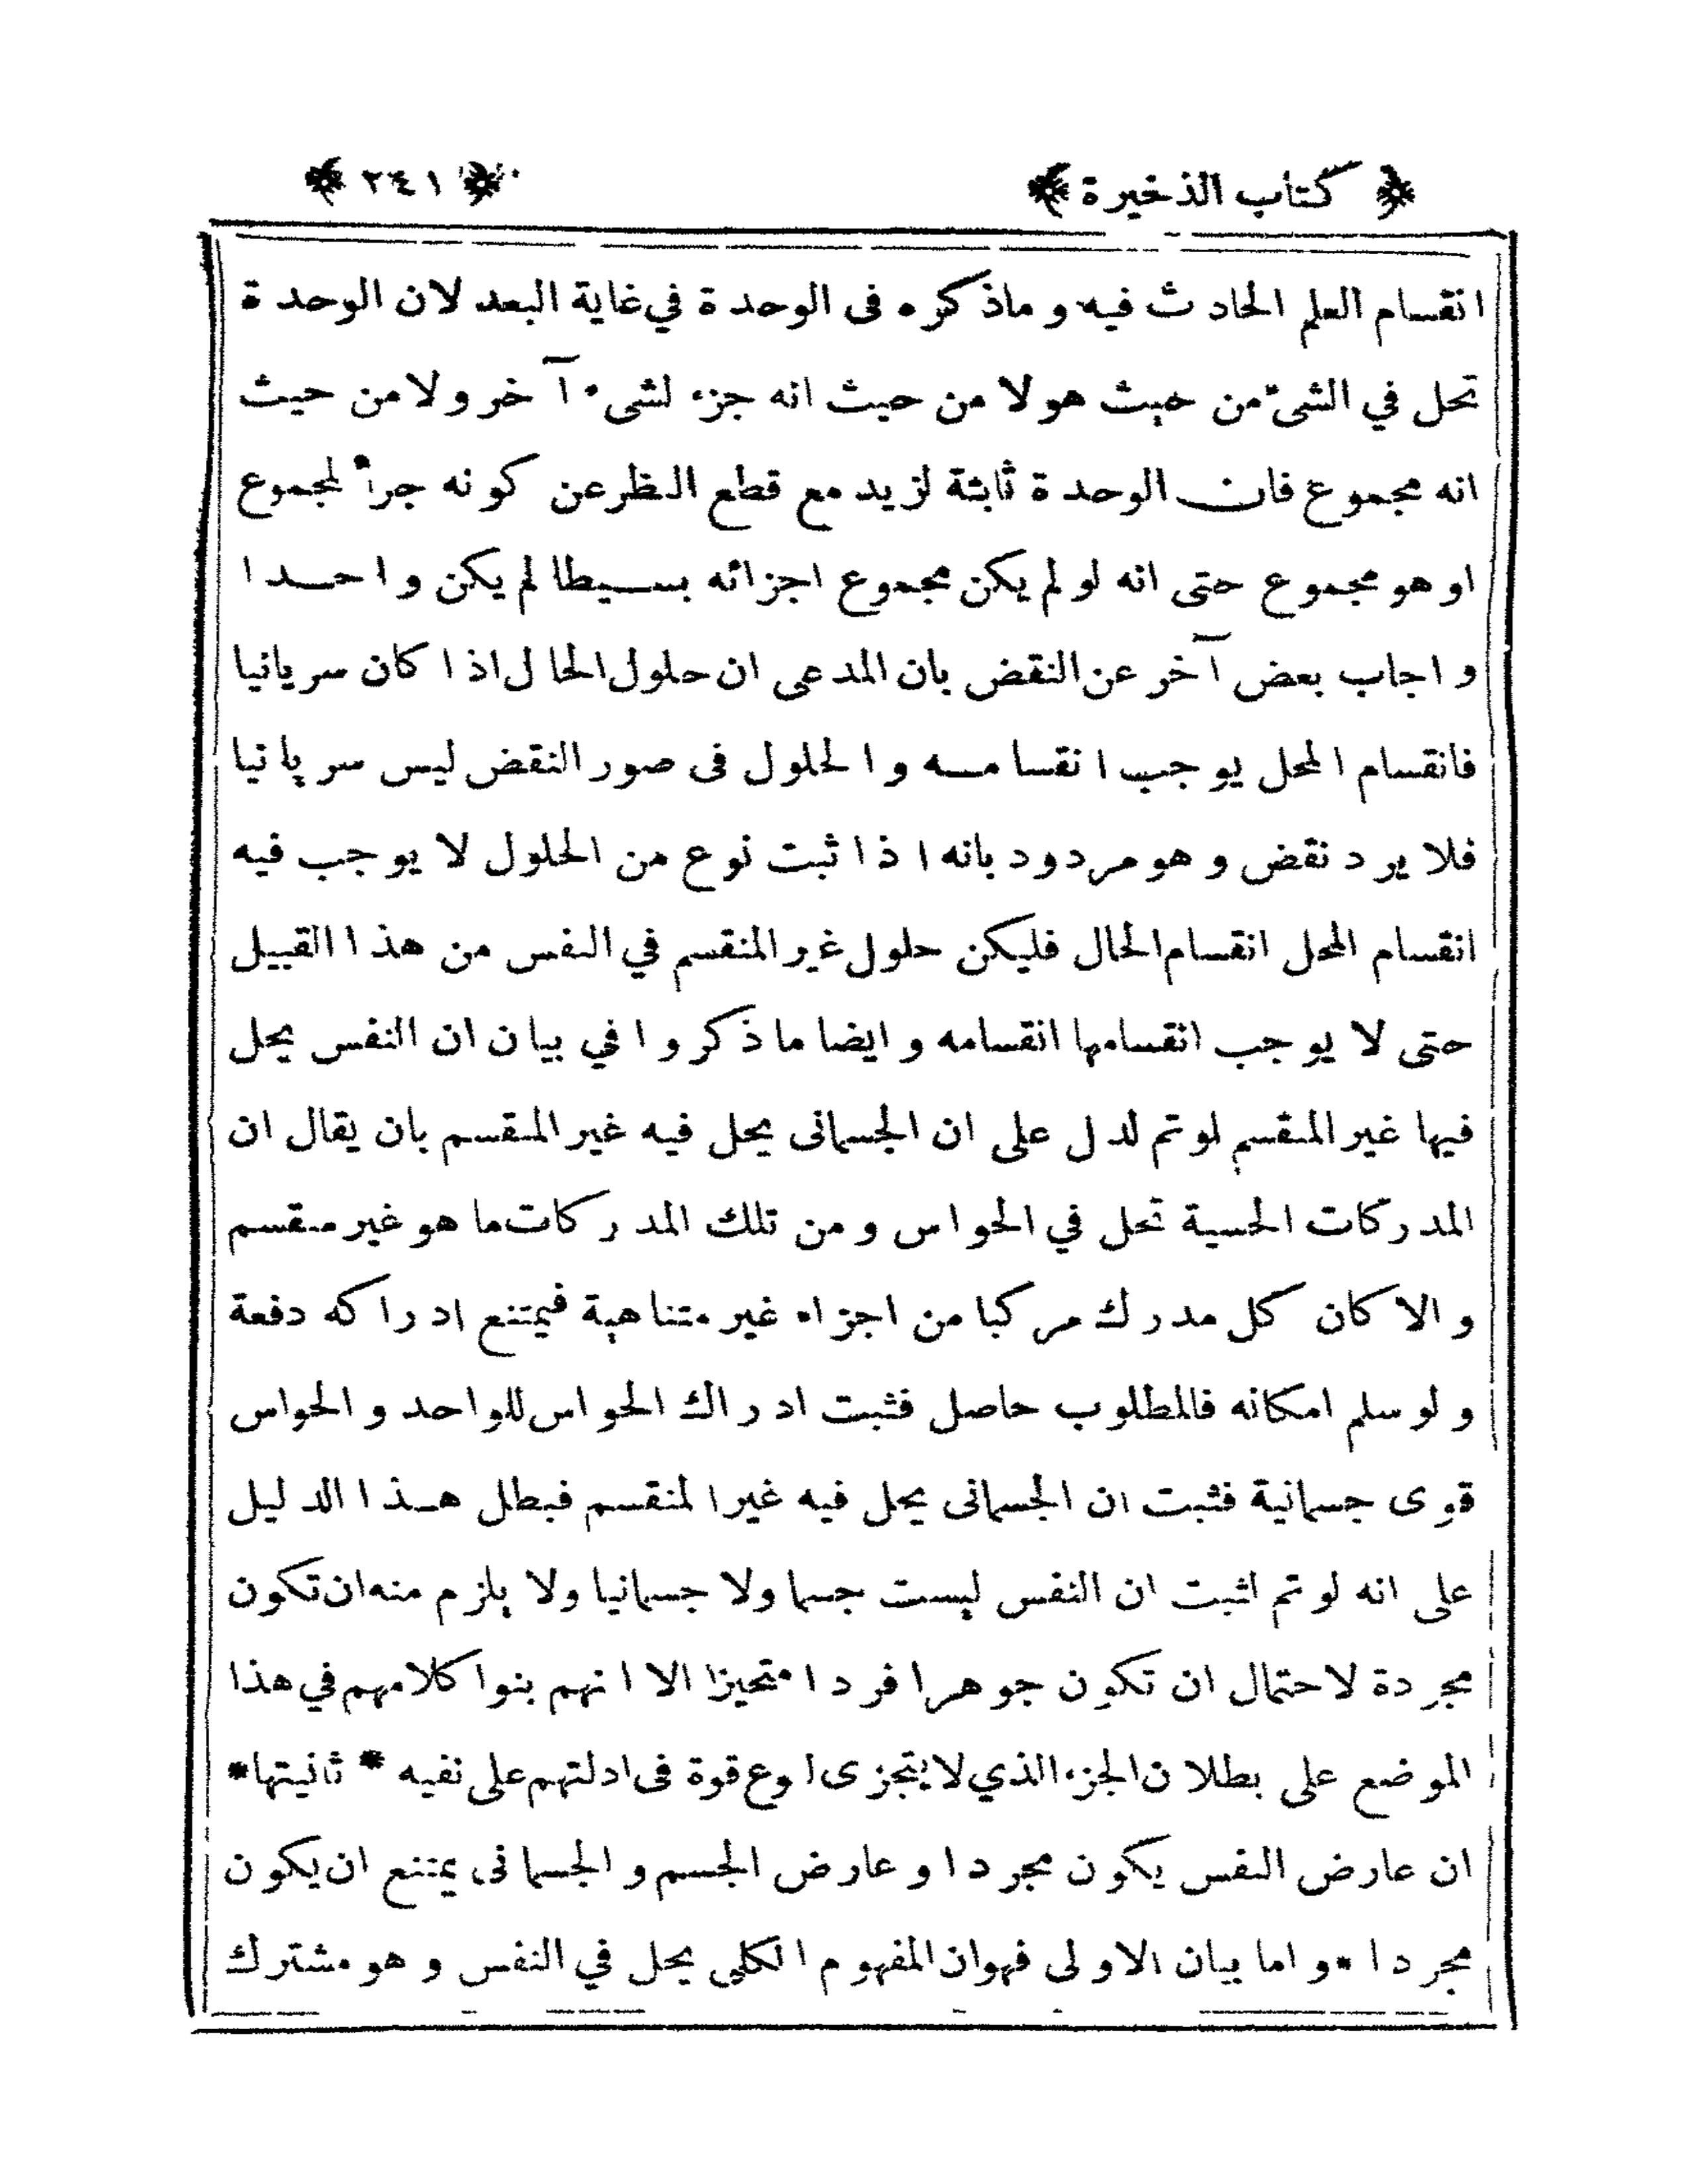 ﴿ كتاب الذخيرة ﴾ ﴿ ٢٤١ ﴾
انقسام العلم الحادث فيه وماذكره فى الوحدة في غاية البعد لان الوحدة
تحل في الشئ من حيث هو لا من حيث انه جزء لشىء آخر ولا من حيث
انه مجموع فان الوحدة ثابتة لزيد مع قطع النظر عن كونه جزأ لمجموع
او هو مجموع حتى انه لو لم يكن مجموع اجزائه بسيطا لم يكن واحدا
واجاب بعض آخر عن النقض بان المدعى ان حلول الحال اذا كان سريانيا
فانقسام المحل يوجب انقسامه والحلول فى صور النقض ليس سريانيا
فلا يرد نقض وهو مردود بانه اذا ثبت نوع من الحلول لا يوجب فيه
انقسام المحل انقسام الحال فليكن حلول غير المنقسم في النفس من هذا القبيل
حتى لا يوجب انقسامها انقسامه وايضا ما ذكروا في بيان ان النفس يحل
فيها غير المنقسم لو تم لدل على ان الجسمانى يحل فيه غير المنقسم بان يقال ان
المدركات الحسية تحل في الحواس ومن تلك المدركات ما هو غير منقسم
والا كان كل مدرك مركبا من اجزاء غير متناهية فيمتنع ادراكه دفعة
ولو سلم امكانه فالمطلوب حاصل فثبت ادراك الحواس للواحد والحواس
قوى جسمانية فثبت ان الجسمانى يحل فيه غير المنقسم فبطل هذا الدليل
على انه لو تم لثبت ان النفس ليست جسما ولا جسمانيا ولا يلزم منه ان تكون
مجردة لاحتمال ان تكون جوهرا فردا متحيزا الا انهم بنوا كلامهم في هذا
الموضع على بطلان الجزء الذي لا يتجزى لوع قوة فى ادلتهم على نفيه * ثانيتها *
ان عارض النفس يكون مجردا وعارض الجسم والجسمانى يمتنع ان يكون
مجردا * واما بيان الاولى فهو ان المفهوم الكلى يحل في النفس وهو مشترك